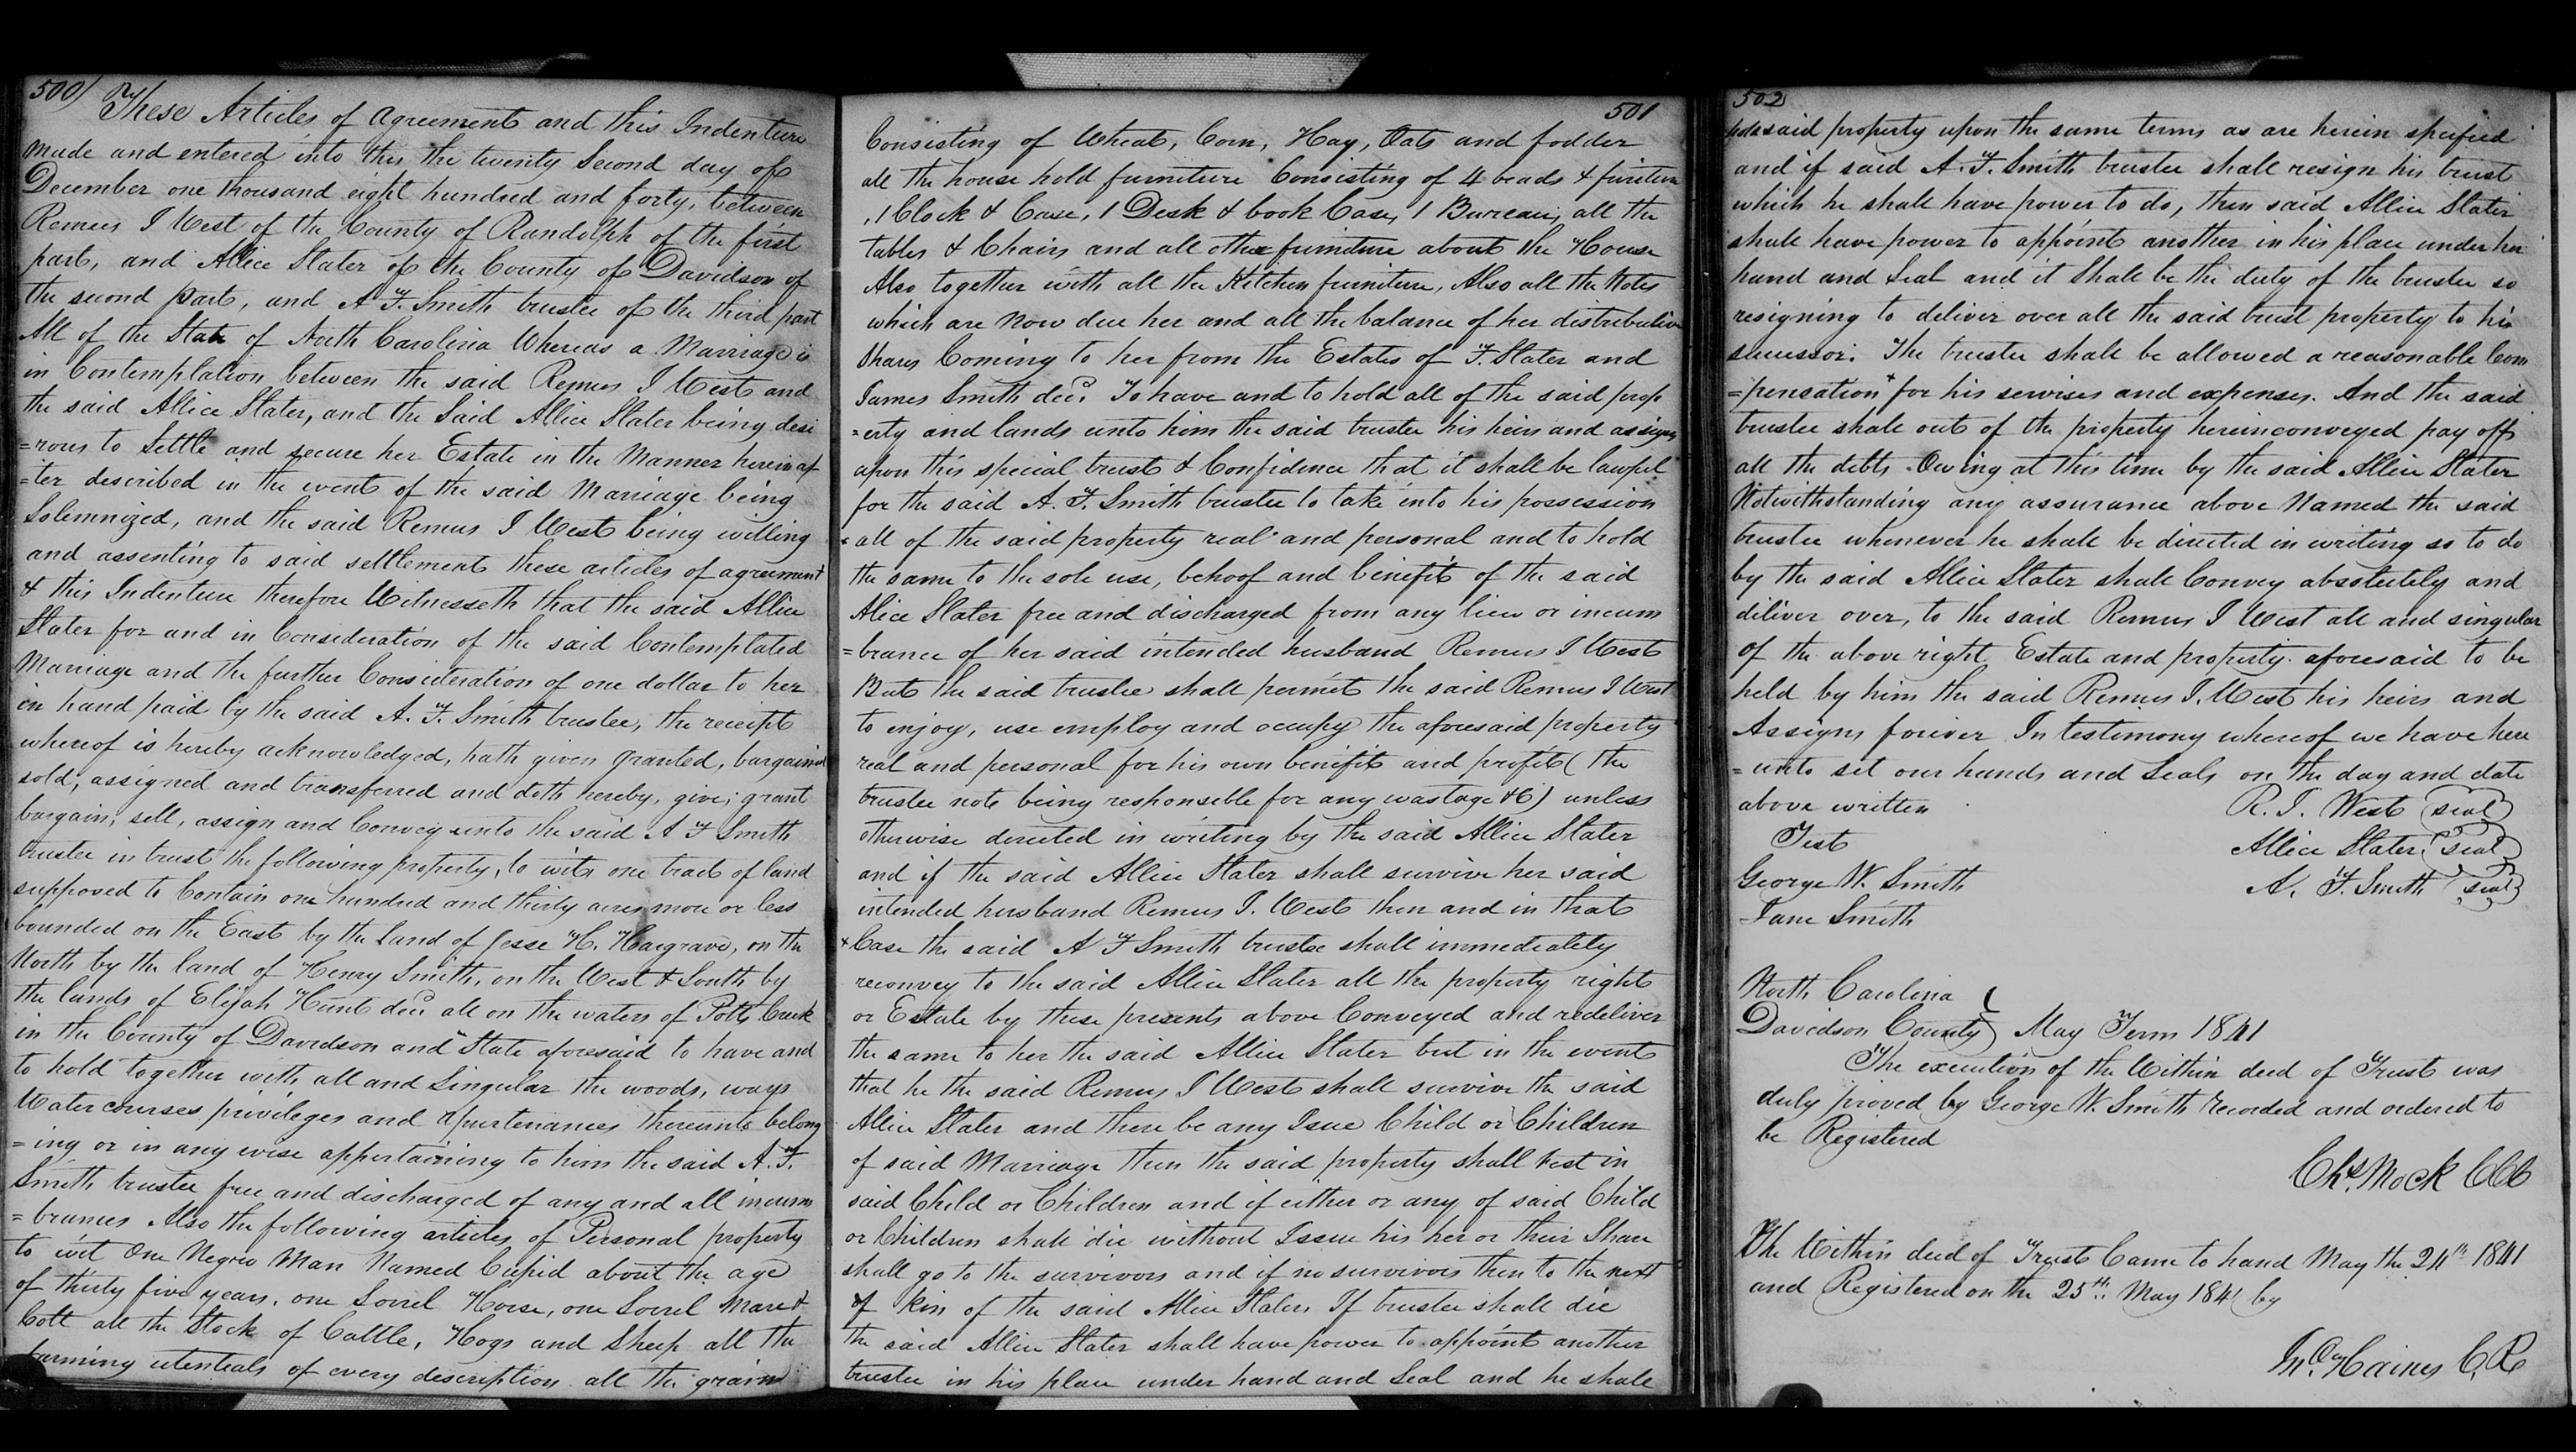 500)
These Articles of Agreements and this Indenture
made and entered into this the twenty Second day of
December one thousand eight hundred and forty, between
Remus I West of the County of Randolph of the first
part, and Allice Slater of the County of Davidson of
the second part, and A F. Smith trustee of the third part
All of the State of North Carolina Whereas a Marriage is
in Contemplation between the said Remus I West and
the said Allice Slater, and the Said Allice Slater being desi
=rous to Settle and secure her Estate in the Manner hereinaf
=ter described in the event of the said Marriage being
Solemnized, and the said Remus I West being willing
and assenting to said settlement these articles of agreement
& this Indenture therefore Witnesseth that the said Allice
Slater for and in Consideration of the said Contemplated
Marriage and the further Consideration of one dollar to her
in hand paid by the said A. F. Smith trustee, the receipt
whereof is hereby acknowledged, hath given granted, bargained
sold, assigned and transferred and doth hereby, give, grant
bargain, sell, assign and Convey unto the said A F Smith
trustee in trust the following property, to wit, one tract of land
supposed to Contain one hundred and thirty acres more or less
bounded on the East by the Land of Jesse H. Hargrave, on the
North by the land of Henry Smith, on the West & South by
the lands of Elijah Hunt decd all on the waters of Potts Creek
in the County of Davidson and State aforesaid to have and
to hold together with all and Singular the woods, ways
Water courses privileges and apurtenances thereunto belong
=ing or in any wise appertaining to him the said A. F.
Smith trustee free and discharged of any and all incum
=brances Also the following articles of Personal property
to wit One Negro Man Named Cupid about the age
of thirty five years, one Sorrel Horse, one Sorrel Mare &
Colt all the Stock of Cattle, Hogs and Sheep all the
farming utentials of every description all the grain
501
Consisting of Wheat, Corn, Hay, Oats and fodder
all the house hold furniture Consisting of 4 beads & furniture
, 1 Clock & Case, 1 Desk & book Case, 1 Bureau, all the
tables & Chairs and all other furniture about the House
Also together with all the Kitchen furniture, Also all the Notes
which are Now due her and all the balance of her distributive
Shares Coming to her from the Estates of F. Slater and
James Smith decd To have and to hold all of the said prop
=erty and lands unto him the said trustee his heirs and assigns
upon this special trust & Confidence that it shall be lawful
for the said A. F. Smith trustee to take into his possession
all of the said property real and personal and to hold
the same to the sole use, behoof and benifit of the said
Alice Slater free and discharged from any lien or incum
=brance of her said intended husband Remus I West
But the said trustee shall permit the said Remus I West
to enjoy, use employ and occupy the aforesaid property
real and personal for his own benifit and profit ( the
trustee note being responsible for any wastage &C ) unless
otherwise directed in writing by the said Allice Slater
and if the said Allice Slater shall survive her said
intended husband Remus I. West then and in that
Case the said A F Smith trustee shall immediately
reconvey to the said Allice Slater all the property right
or Estate by these presents above Conveyed and redeliver
the same to her the said Allice Slater but in the event
that he the said Remus I West shall survive the said
Allice Slater and there be any Isue Child or Children
of said Marriage then the said property shall vest in
said Child or Children and if either or any of said Child
or Children shall die without Issue his her or their Share
shall go to the survivors and if no survivors then to the next
of kin of the said Allice Slater. If trustee shall die
the said Allice Slater shall have power to appoint another
trustee in his place under hand and Seal and he shall
502
said property upon the same terms as are herein specified
and if said A. F. Smith trustee shall resign his trust
which he shall have power to do, then said Allice Slater
shall have power to appoint another in his place under her
hand and Seal and it Shall be the duty of the trustee so
resigning to deliver over all the said trust property to his
successor. The trustee shall be allowed a reasonable Com
=pensation for his servises and expenses. And the said
trustee shall out of the property hereinconveyed pay off
all the debts Owing at this time by the said Allice Slater
Notwithstanding any assurance above Named the said
trustee whenever he shall be directed in writing so to do
by the said Allice Slater shall Convey absolutely and
diliver over, to the said Remus I West all and singular
of the above right, Estate and property aforesaid to be
held by him the said Remus I. West his heirs and
Assigns forever In testimony whereof we have here
=unto set our hands and Seals on the day and date
above written R. I. West (seal)
Test Allice Slater (seal)
George W. Smith A. F. Smith (seal)
Jane Smith
North Carolina
Davidson County May Term 1841
The execution of the Within deed of Trust was
duly proved by George W. Smith recorded and ordered to
be Registered
Chs. Mock CCC
The Within deed of Trust Came to hand May the 24th 1841
and Registered on the 25th. May 1841 by
Haines C. R